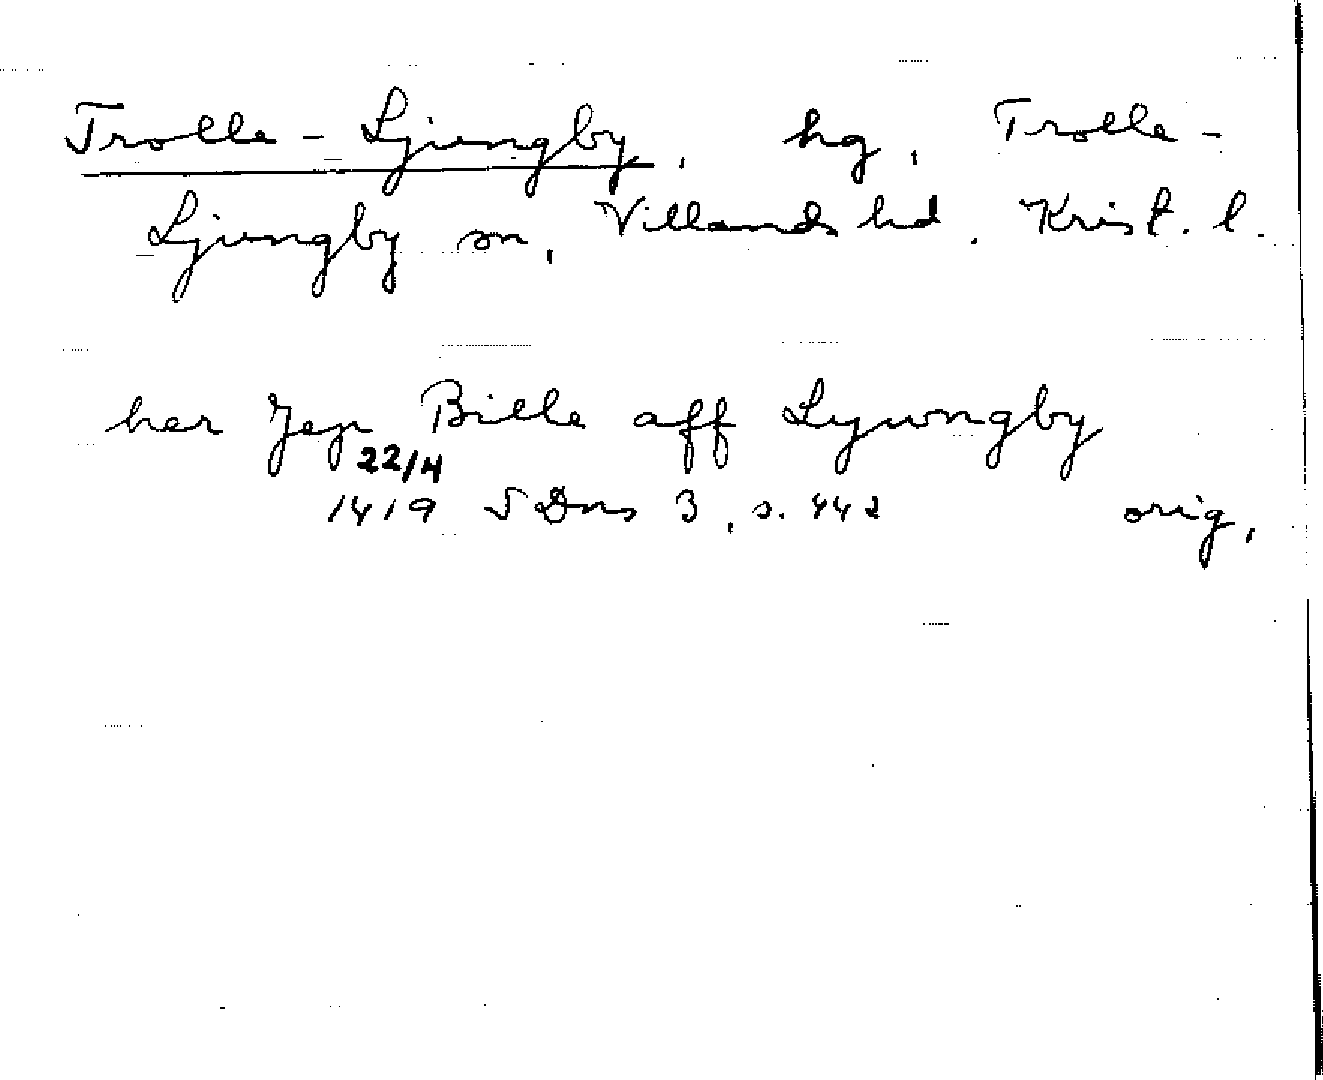 Trolle-Ljungby, hg, Trolle-
Ljungby sn, Villands hd. Krist. l.
her Jep Bille aff Lywngby
22/4
1419 SDns 3, s. 442 orig,